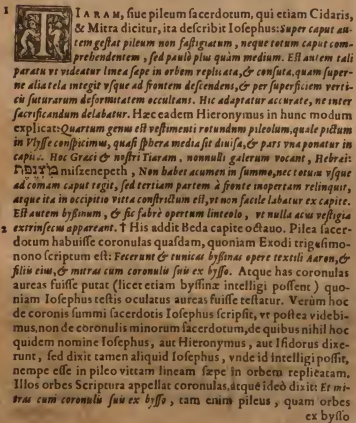 1 TIARAM, siue pileum sacerdotum, qui etiam Cidaris,
& Mitra dicitur, ita describit Iosephus: Super caput au-
tem gestat pileum non fastigiatum, neque totum caput com-
prehendentem, sed paulò plus quàm medium. Est autem tali
paratu vt videatur linea sæpe in orbem replicata, & consuta, quam super-
ne alia tela integit vsque ad frontem descendens, & per superficiem verti-
cis suturarum deformitatem occultans. Hic adaptatur accurate, ne inter
sacrificandum delabatur. Hæc eadem Hieronymus in hunc modum
explicat: Quartum genus est vestimenti rotundum pileolum, quale pictum
in Vlysse conspicimus, quasi sphera media sit diuisa, & pars vna ponatur in
capite. Hoc Græci & nostri Tiaram, nonnulli galerum vocant, Hebræi:
מצנפת miszenepeth, Non habet acumen in summo, nec totum vsque
ad comam caput tegit, sed tertiam partem à fronte inopertam relinquit,
atque ita in occipitio vitta constrictum est, vt non facile labatur ex capite.
Est autem byssinum, & sic fabrè opertum linteolo, vt nulla acus vestigia
2 extrinsecus appareant. † His addit Beda capite octauo. Pilea sacer-
dotum habuisse coronulas quasdam, quoniam Exodi trigesimo-
nono scriptum est: Fecerunt & tunicas byssinas opere textili Aaron, &
filiis eius, & mitras cum coronulis suis ex bysso. Atque has coronulas
aureas fuisse putat (licet etiam byssinæ intelligi possent) quo-
niam Iosephus testis oculatus aureas fuisse testatur. Verùm hoc
de coronis summi sacerdotis Iosephus scripsit, vt postea videbi-
mus, non de coronulis minorum sacerdotum, de quibus nihil hoc
quidem nomine Iosephus, aut Hieronymus, aut Isidorus dixe-
runt, sed dixit tamen aliquid Iosephus, vnde id intelligi possit,
nempe esse in pileo vittam lineam sæpe in orbem replicatam.
Illos orbes Scriptura appellat coronulas, atque ideò dixit: Et mi-
tras cum coronulis suis ex bysso, tam enim pileus, quam orbes
ex bysso